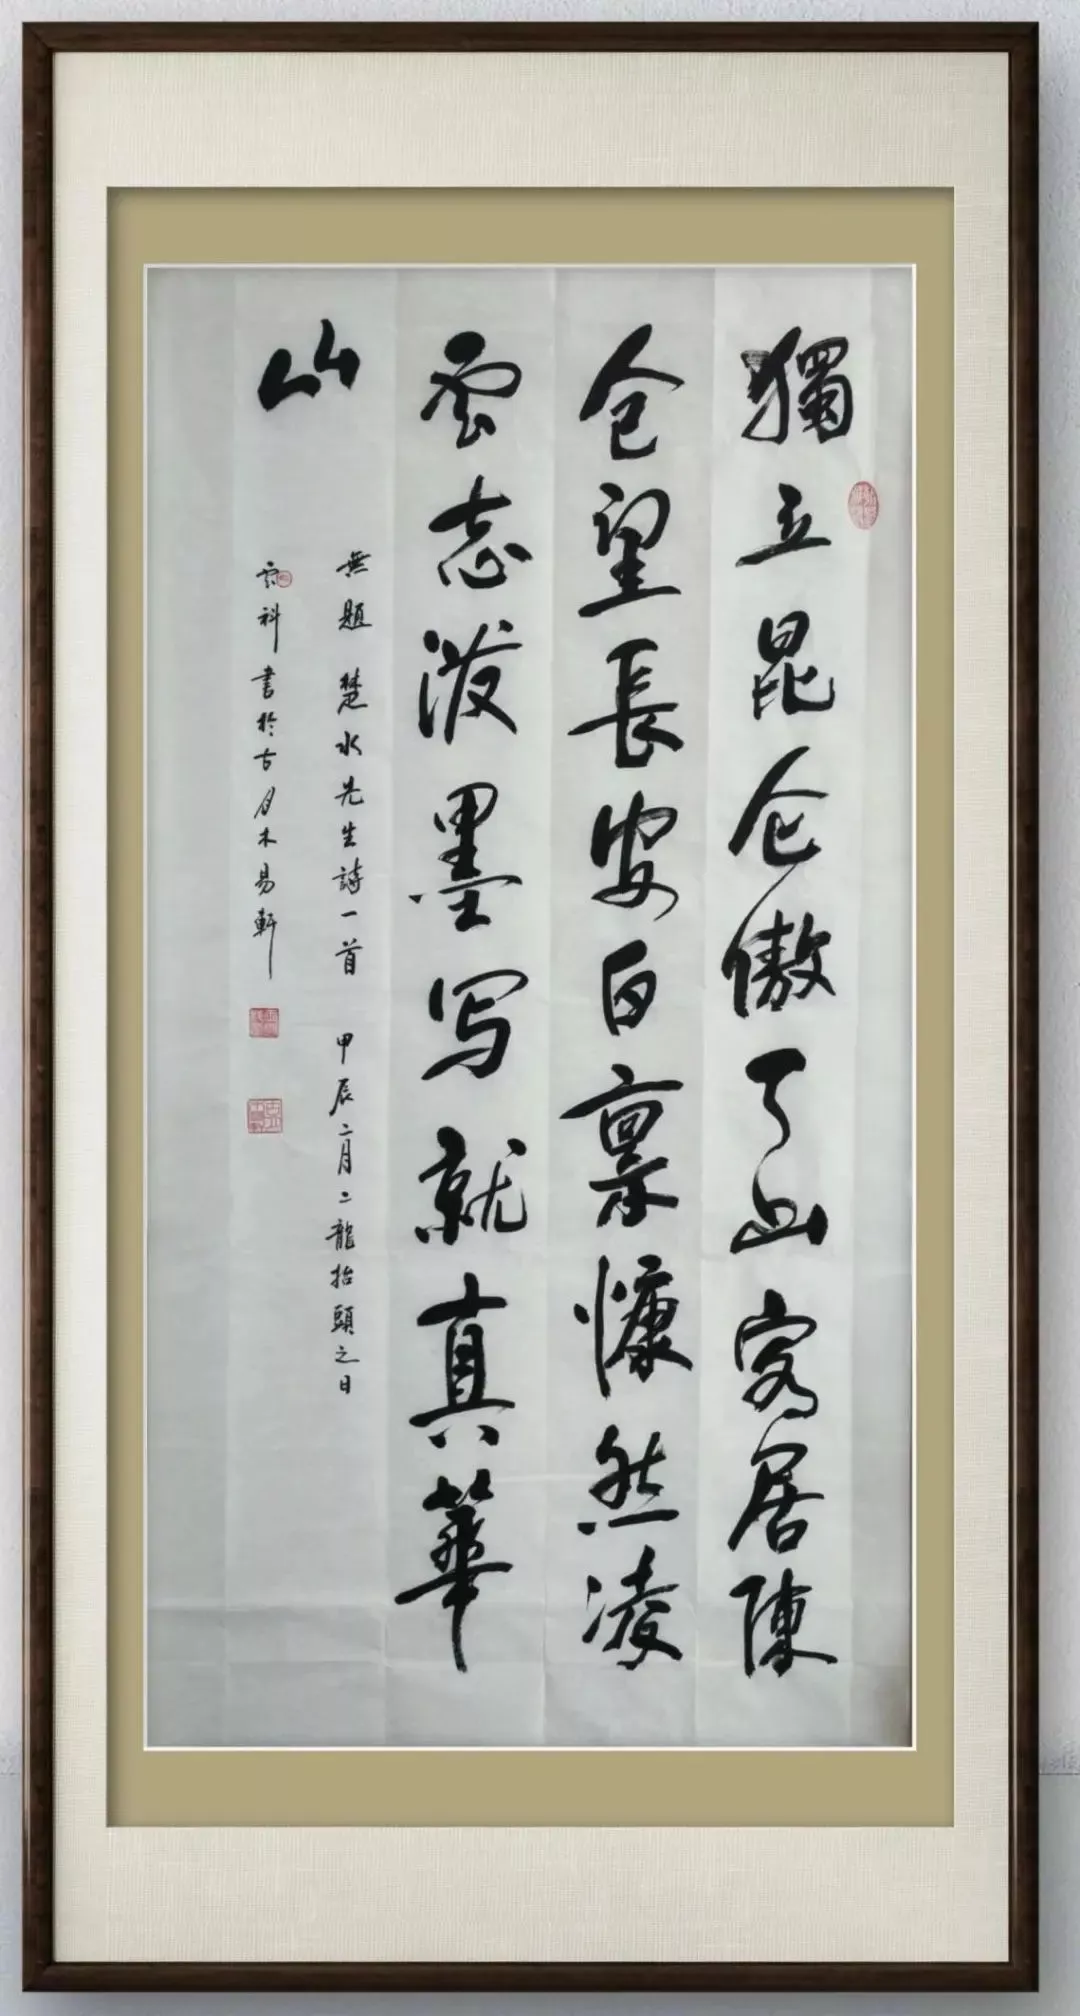 獨立昆仑傲山客居陳
仓望長安自禀慷然凌
雲志泼墨写就真華
山
無題 楚水先生詩一首 甲辰二月二龍抬頭之日
雲科書於古月木易軒